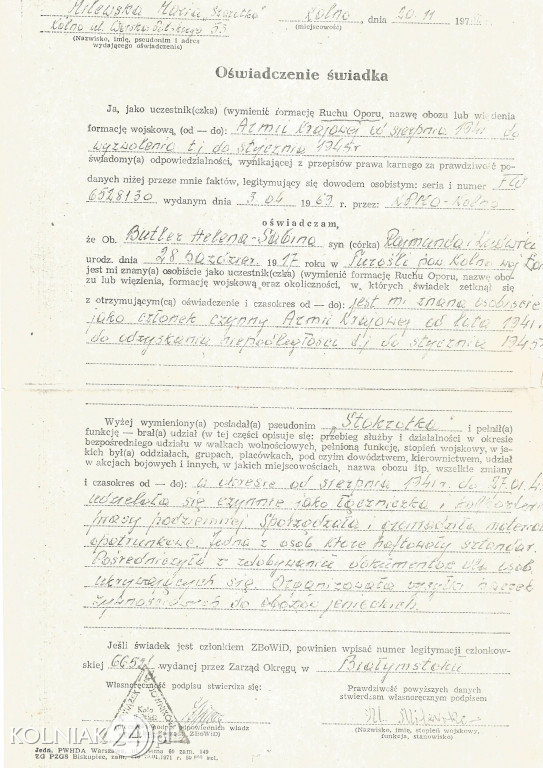 Milewska Maria "Szarotka"
Kolno, dnia 20.11 197
Kolno ul. Wojska Polskiego 53
(Nazwisko, imię, pseudonim i adres
wydającego oświadczenie)
(miejscowość)
Oświadczenie świadka
Ja, jako uczestnik(czka) (wymienić formację Ruchu Oporu, nazwę obozu lub więzienia
formację wojskową, (od — do): Armii Krajowej w sierpnia 1941 do
wyzwolenia t.j do stycznia 1945r
świadomy(a) odpowiedzialności, wynikającej z przepisów prawa karnego za prawdziwość po-
danych niżej przeze mnie faktów, legitymujący się dowodem osobistym: seria i numer
6528130 wydanym dnia 3.04 1969 r. przez: Kolno
oświadczam,
że Ob. Butler Helena-Sabina syn (córka) Rajmunda i Ludwika
urodz. dnia 28 październ. 1917 roku w Turośli pow Kolno woj
jest mi znany(a) osobiście jako uczestnik(czka) (wymienić formację Ruchu Oporu, nazwę obo-
zu lub więzienia, formację wojskową oraz okoliczności, w których świadek zetknął się
z otrzymującym(cą) oświadczenie i czasokres od — do): jest mi znana osobiście
jako członek czynny Armii Krajowej od lata 1941r.
do odzyskania niepodległości t.j do stycznia 1945
Wyżej wymieniony(a) posiadał(a) pseudonim "Stokrotka" i pełnił(a)
funkcję — brał(a) udział (w tej części opisuje się: przebieg służby i działalności w okresie
bezpośredniego udziału w walkach wolnościowych, pełnioną funkcję, stopień wojskowy, w ja-
kich był(a) oddziałach, grupach, placówkach, pod czyim dowództwem, kierownictwem, udział
w akcjach bojowych i innych, w jakich miejscowościach, nazwa obozu itp. wszelkie zmiany
i czasokres od — do): w okresie od sierpnia 1941r. do 27.01.4
udzielała się czynnie jako łączniczka i kolporterka
prasy podziemnej. Sporządzała i gromadziła materiał
opatrunkowe. Jedna z osób które haftowały sztandar.
Pośredniczyła w zdobywaniu dokumentów dla osób
ukrywających się. Organizowała wysyłki paczek
żywnościowych do obozów jenieckich.
Jeśli świadek jest członkiem ZBoWiD, powinien wpisać numer legitymacji członkow-
skiej 66521 wydanej przez Zarząd Okręgu w Białymstoku
Własnoręczność podpisu stwierdza się:
Prawdziwość powyższych danych
stwierdzam własnoręcznym podpisem
Koło
M. Milewska
(Nazwisko, imię, stopień wojskowy,
funkcja, stanowisko)
KOLNIAK 24
Jedn. PWHDA Warszawa
ZG PZGS Biskupiec, zam.